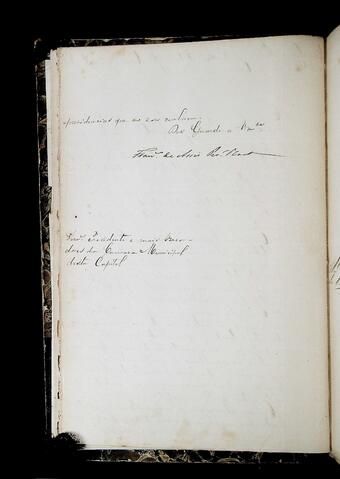 providencias que no caso
Deos Guarde a V.ces
Fran.co de Assis
Snr.s Presidente e mais Verea-
dores da Camara Municipal
desta Capital